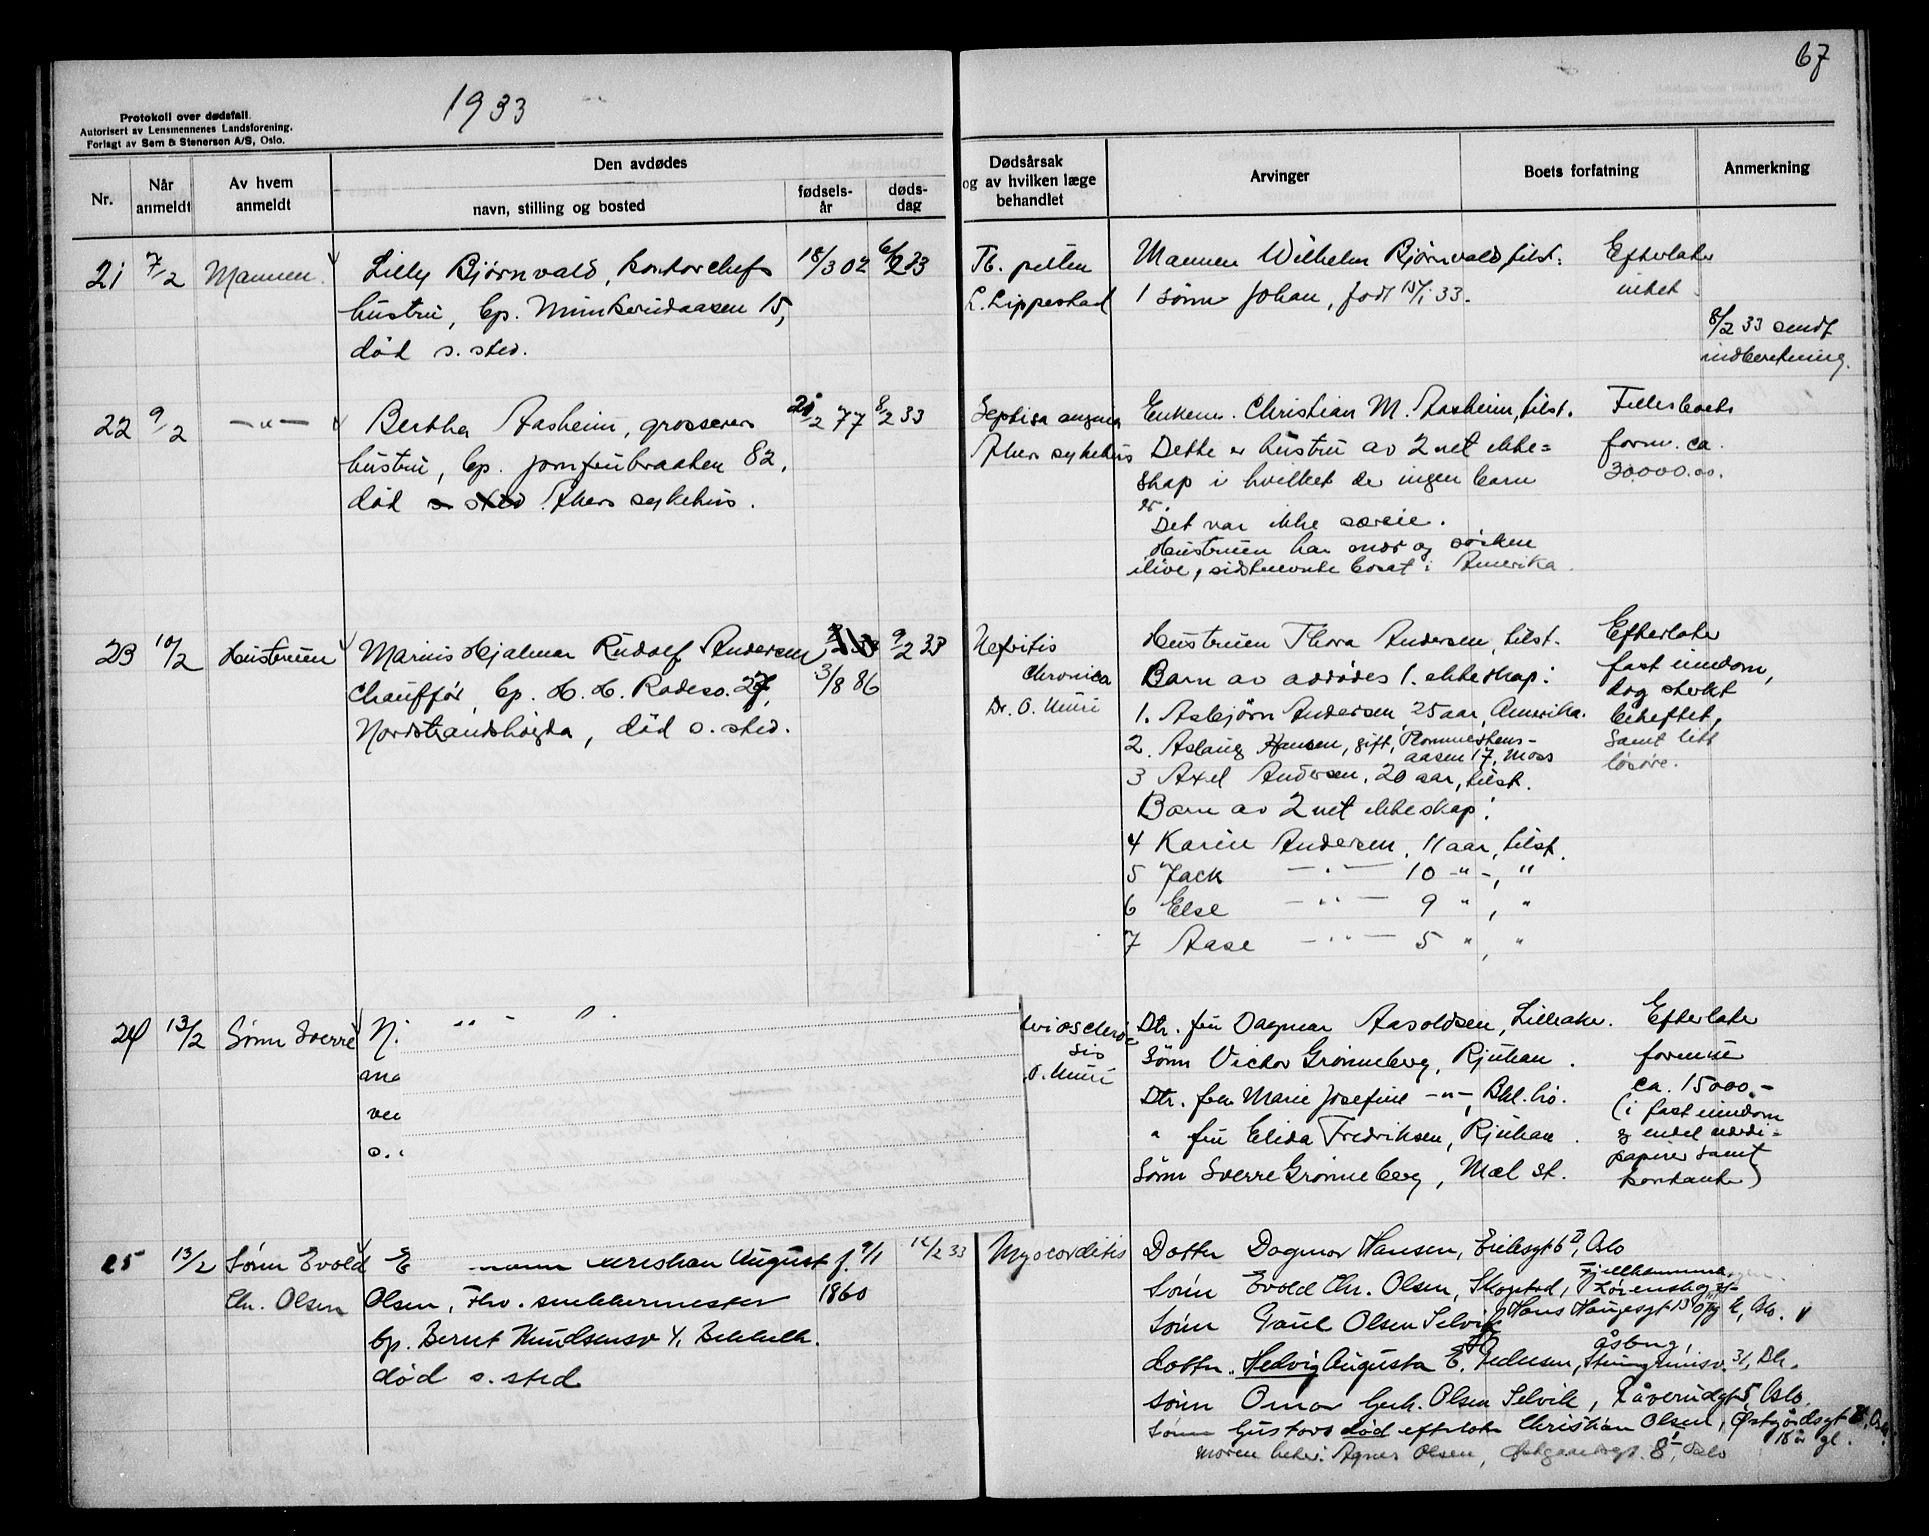 67
1933
Protokoll over dødsfall.
Autorisert av Lensmennenes Landsforening.
Forlagt av Sem & Stenersen A/S, Oslo.
Nr.
Når anmeldt
Av hvem anmeldt
Den avdødes
navn, stilling og bosted
fødsels-år
døds-dag
Dødsårsak og av hvilken læge behandlet
Arvinger
Boets forfatning
Anmerkning
21 7/2 Mannen Lilly Bjørnvald, kontorchefs 18/3 02 6/2 33
hustru, bp. Munkerudaasen 15,
død s. sted.
Tb. pulm
L. Lippestad
Mannen Wilhelm Bjørnvald, tilst.
1 sønn Johan, født 15/1 33.
Efterlater
intet
8/2 33 sendt
indberetning.
22 9/2 —"— Bertha Aasheim, grosserer 21/2 77 8/2 33
hustru, bp. Jomfrubraaten 82,
død s. sted Akers sykehus.
Septisa angina
Akers sykehus
Enkem. Christian M. Aasheim, tilst.
Dette er hustru av 2net ekte=
skap i hvilket der ingen barn
er.
Det var ikke særeie.
Hustruen har mor og søsken
ilive, sidstnevnte bosat i Amerika.
Fellesboets
form. ca.
30.000.00.
23 10/2 Hustruen Marius Hjalmar Rudolf Andersen 9/2 33
Chauffør, bp. H. H. Radesv. 27, 3/8 86
Nordstrandshøgda, død s. sted.
Nefritis
Chronica
Dr. O. Muri
Hustruen Thora Andersen, tilst.
Barn av avdødes 1. ekteskap:
1. Asbjørn Andersen, 25 aar, Amerika.
2. Aslaug Hansen, gift, Plommestens-
aasen 17, Moss
3 Axel Andersen, 20 aar, tilst.
Barn av 2net ekteskap:
4 Karin Andersen, 11 aar, tilst.
5 Jack —"— 10 -"-, "
6 Else —"— 9 ", "
7 Aase —"— 5 ", "
Efterlater
fast eiendom,
dog sterkt
beheftet,
samt litt
løsøre.
24 13/2 Sønn Sverre N.
ma
ven
s.
sis
O. Muri
Dtr. fru Dagmar Aasoldsen, Lilleaker.
Sønn Victor Grønneberg, Rjukan.
Dtr. frk Marie Josefine —"—, Bkl.
" fru Elida Fredriksen, Rjukan.
Sønn Sverre Grønneberg, Mæl st.
Efterlater
formue
ca. 15000.-
(i fast eiendom
og endel verdi=
papirer samt
kontanter)
25 13/2 Sønn Evold E Kristian August f. 9/1 12/2 33
Chr. Olsen Olsen, Fhv. snekkermester 1860
bp. Bernt Knudsensv 4, Bekkelh.
død s. sted
Myocorditis
Datter Dagmar Hansen, Eriksgt 6 II, Oslo
Fjellhammer
Sønn Evold Chr. Olsen, Skogstad, Lørenskog st-
Sønn Paul Olsen Selvik Hans Haugesgt 13 Opg C, Oslo.
Åsborg,
datter. Hedvig Augusta E. Pedersen, 31,
sønn Omar Gerh. Olsen Selvik, 5, Oslo
sønn Gustavs død efterlater Christian Olsen, Østgårdsgt 8, Oslo
16 år gl.
moren heter: Agnes Olsen, Østgaardsgt. 8, Oslo